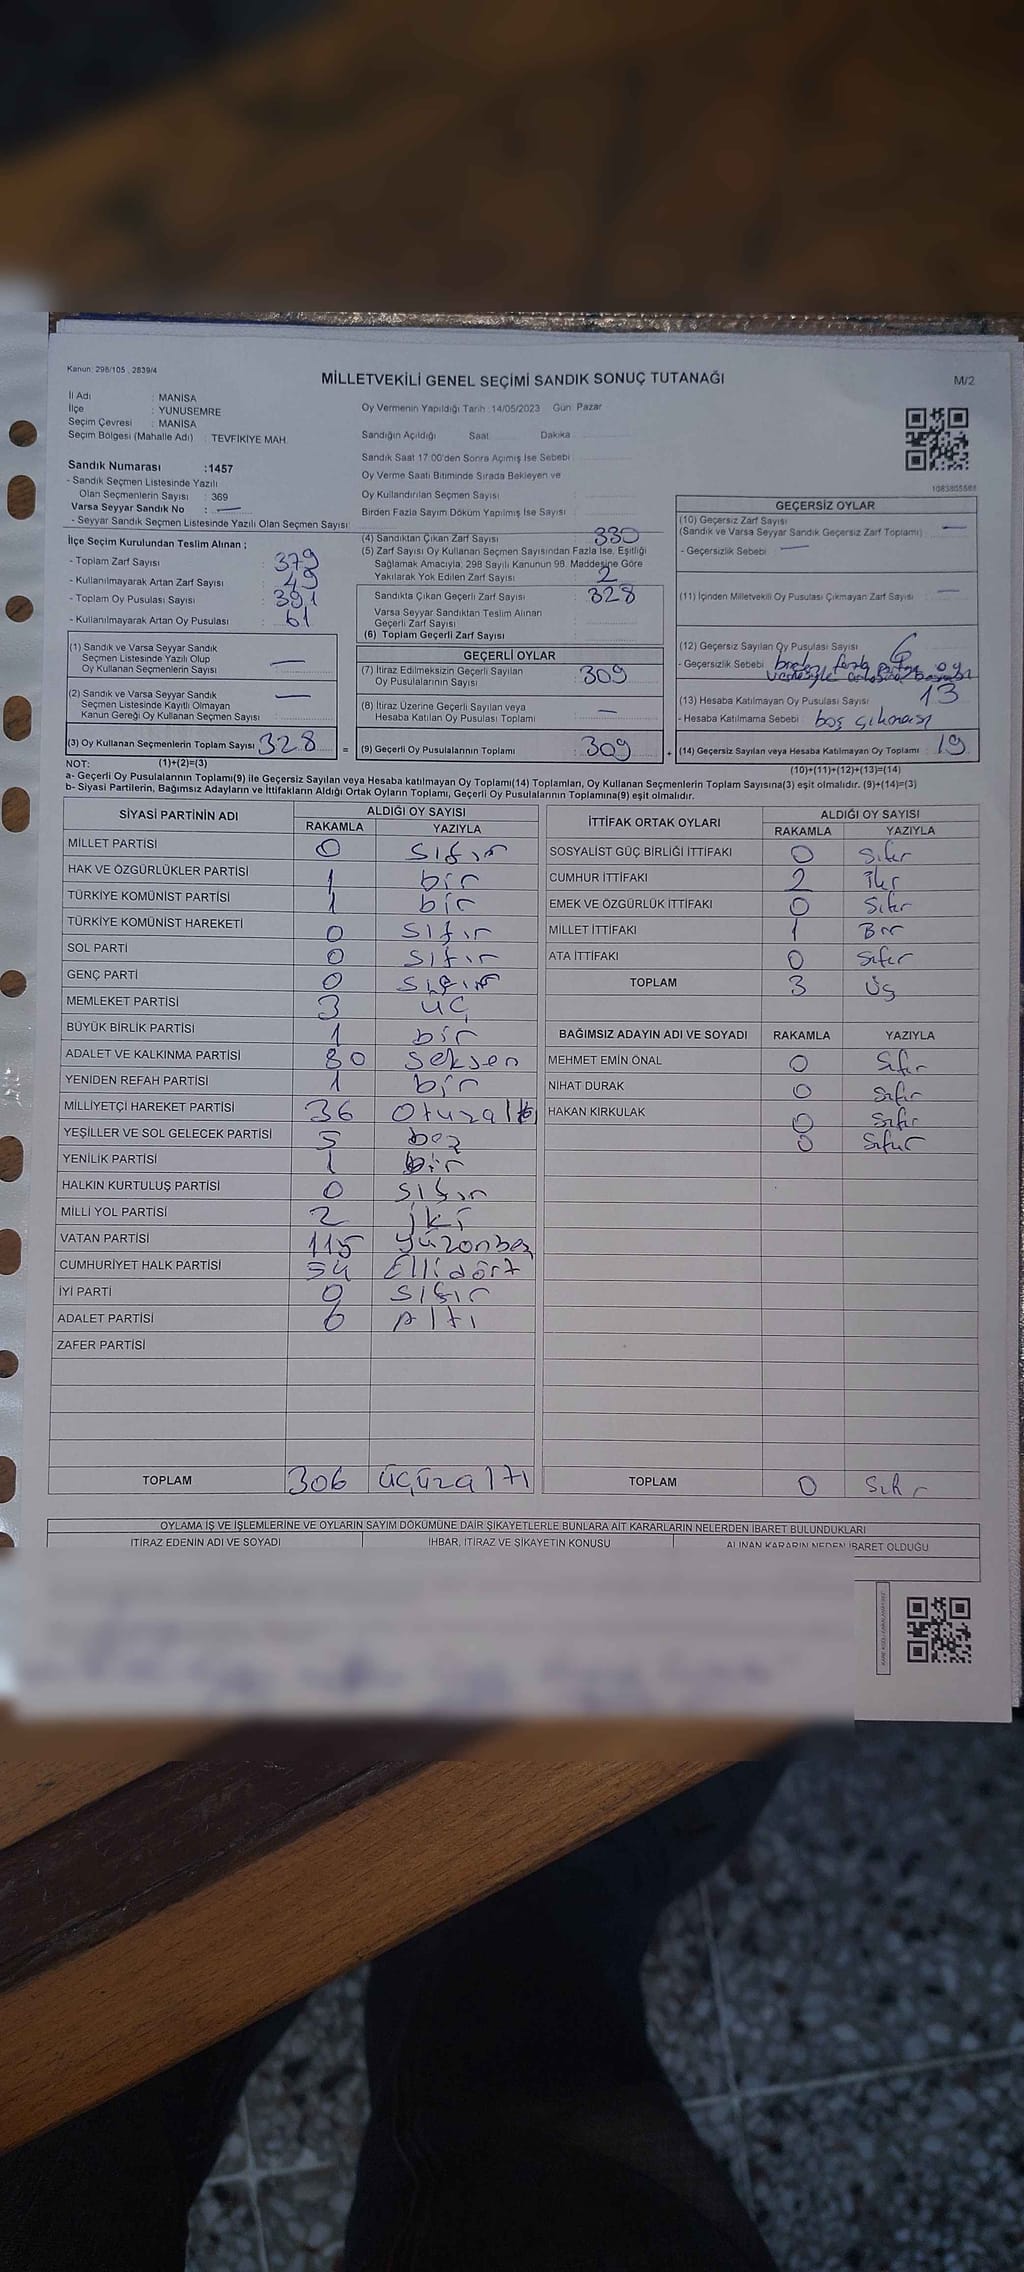 Kanun: 298/105 , 2839/4
MİLLETVEKİLİ GENEL SEÇİMİ SANDIK SONUÇ TUTANAĞI
M/2
İl Adı : MANİSA
İlçe : YUNUSEMRE
Seçim Çevresi : MANİSA
Seçim Bölgesi (Mahalle Adı) : TEVFİKİYE MAH.
Oy Vermenin Yapıldığı Tarih : 14/05/2023 Gün: Pazar
Sandığın Açıldığı Saat Dakika
Sandık Saat 17:00'den Sonra Açılmış İse Sebebi :
Oy Verme Saati Bitiminde Sırada Bekleyen ve
Oy Kullandırılan Seçmen Sayısı :
Birden Fazla Sayım Döküm Yapılmış İse Sayısı :
Sandık Numarası :1457
- Sandık Seçmen Listesinde Yazılı
Olan Seçmenlerin Sayısı : 369
Varsa Seyyar Sandık No : —
- Seyyar Sandık Seçmen Listesinde Yazılı Olan Seçmen Sayısı:
İlçe Seçim Kurulundan Teslim Alınan ;
- Toplam Zarf Sayısı : 379
- Kullanılmayarak Artan Zarf Sayısı : 49
- Toplam Oy Pusulası Sayısı : 391
- Kullanılmayarak Artan Oy Pusulası : 61
(1) Sandık ve Varsa Seyyar Sandık
Seçmen Listesinde Yazılı Olup
Oy Kullanan Seçmenlerin Sayısı : —
(2) Sandık ve Varsa Seyyar Sandık
Seçmen Listesinde Kayıtlı Olmayan
Kanun Gereği Oy Kullanan Seçmen Sayısı : —
(3) Oy Kullanan Seçmenlerin Toplam Sayısı : 328
(4) Sandıktan Çıkan Zarf Sayısı : 330
(5) Zarf Sayısı Oy Kullanan Seçmen Sayısından Fazla İse, Eşitliği
Sağlamak Amacıyla, 298 Sayılı Kanunun 98. Maddesine Göre
Yakılarak Yok Edilen Zarf Sayısı : 2
Sandıkta Çıkan Geçerli Zarf Sayısı : 328
Varsa Seyyar Sandıktan Teslim Alınan
Geçerli Zarf Sayısı :
(6) Toplam Geçerli Zarf Sayısı :
GEÇERLİ OYLAR
(7) İtiraz Edilmeksizin Geçerli Sayılan
Oy Pusulalarının Sayısı : 309
(8) İtiraz Üzerine Geçerli Sayılan veya
Hesaba Katılan Oy Pusulası Toplamı : —
= (9) Geçerli Oy Pusulalarının Toplamı : 309
GEÇERSİZ OYLAR
(10) Geçersiz Zarf Sayısı
(Sandık ve Varsa Seyyar Sandık Geçersiz Zarf Toplamı) : —
- Geçersizlik Sebebi : —
(11) İçinden Milletvekili Oy Pusulası Çıkmayan Zarf Sayısı : —
(12) Geçersiz Sayılan Oy Pusulası Sayısı : 6
- Geçersizlik Sebebi : fazla
(13) Hesaba Katılmayan Oy Pusulası Sayısı : 13
- Hesaba Katılmama Sebebi : boş çıkması
+ (14) Geçersiz Sayılan veya Hesaba Katılmayan Oy Toplamı : 19
NOT: (1)+(2)=(3)
(10)+(11)+(12)+(13)=(14)
a- Geçerli Oy Pusulalarının Toplamı(9) ile Geçersiz Sayılan veya Hesaba katılmayan Oy Toplamı(14) Toplamları, Oy Kullanan Seçmenlerin Toplam Sayısına(3) eşit olmalıdır. (9)+(14)=(3)
b- Siyasi Partilerin, Bağımsız Adayların ve İttifakların Aldığı Ortak Oyların Toplamı, Geçerli Oy Pusulalarının Toplamına(9) eşit olmalıdır.
SİYASİ PARTİNİN ADI ALDIĞI OY SAYISI
RAKAMLA YAZIYLA
MİLLET PARTİSİ 0 sıfır
HAK VE ÖZGÜRLÜKLER PARTİSİ 1 bir
TÜRKİYE KOMÜNİST PARTİSİ 1 bir
TÜRKİYE KOMÜNİST HAREKETİ 0 sıfır
SOL PARTİ 0 sıfır
GENÇ PARTİ 0 sıfır
MEMLEKET PARTİSİ 3 üç
BÜYÜK BİRLİK PARTİSİ 1 bir
ADALET VE KALKINMA PARTİSİ 80 seksen
YENİDEN REFAH PARTİSİ 1 bir
MİLLİYETÇİ HAREKET PARTİSİ 36 otuzaltı
YEŞİLLER VE SOL GELECEK PARTİSİ 5 beş
YENİLİK PARTİSİ 1 bir
HALKIN KURTULUŞ PARTİSİ 0 sıfır
MİLLİ YOL PARTİSİ 2 iki
VATAN PARTİSİ 115 yüzonbeş
CUMHURİYET HALK PARTİSİ 54 Ellidört
İYİ PARTİ 0 sıfır
ADALET PARTİSİ 6 Altı
ZAFER PARTİSİ
TOPLAM 306 üçüzaltı
İTTİFAK ORTAK OYLARI ALDIĞI OY SAYISI
RAKAMLA YAZIYLA
SOSYALİST GÜÇ BİRLİĞİ İTTİFAKI 0 Sıfır
CUMHUR İTTİFAKI 2 İki
EMEK VE ÖZGÜRLÜK İTTİFAKI 0 Sıfır
MİLLET İTTİFAKI 1 Bir
ATA İTTİFAKI 0 Sıfır
TOPLAM 3 Üç
BAĞIMSIZ ADAYIN ADI VE SOYADI RAKAMLA YAZIYLA
MEHMET EMİN ÖNAL 0 Sıfır
NİHAT DURAK 0 Sıfır
HAKAN KIRKULAK 0 Sıfır
0 Sıfır
TOPLAM 0 Sıfır
OYLAMA İŞ VE İŞLEMLERİNE VE OYLARIN SAYIM DÖKÜMÜNE DAİR ŞİKAYETLERLE BUNLARA AİT KARARLARIN NELERDEN İBARET BULUNDUKLARI
İTİRAZ EDENİN ADI VE SOYADI İHBAR, İTİRAZ VE ŞİKAYETİN KONUSU ALINAN KARARIN NEDEN İBARET OLDUĞU